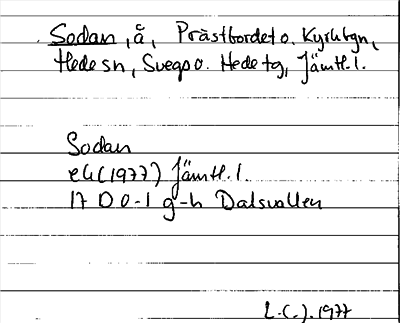 Sodan, å, Prästbordet o. Kyrkbyn,
Hede sn, Svegs o. Hede tg, Jämtl. l.
Sodan
ek (1977) Jämtl. l
17 D 0-1 g-h Dalsvallen
L.C.J. 1977